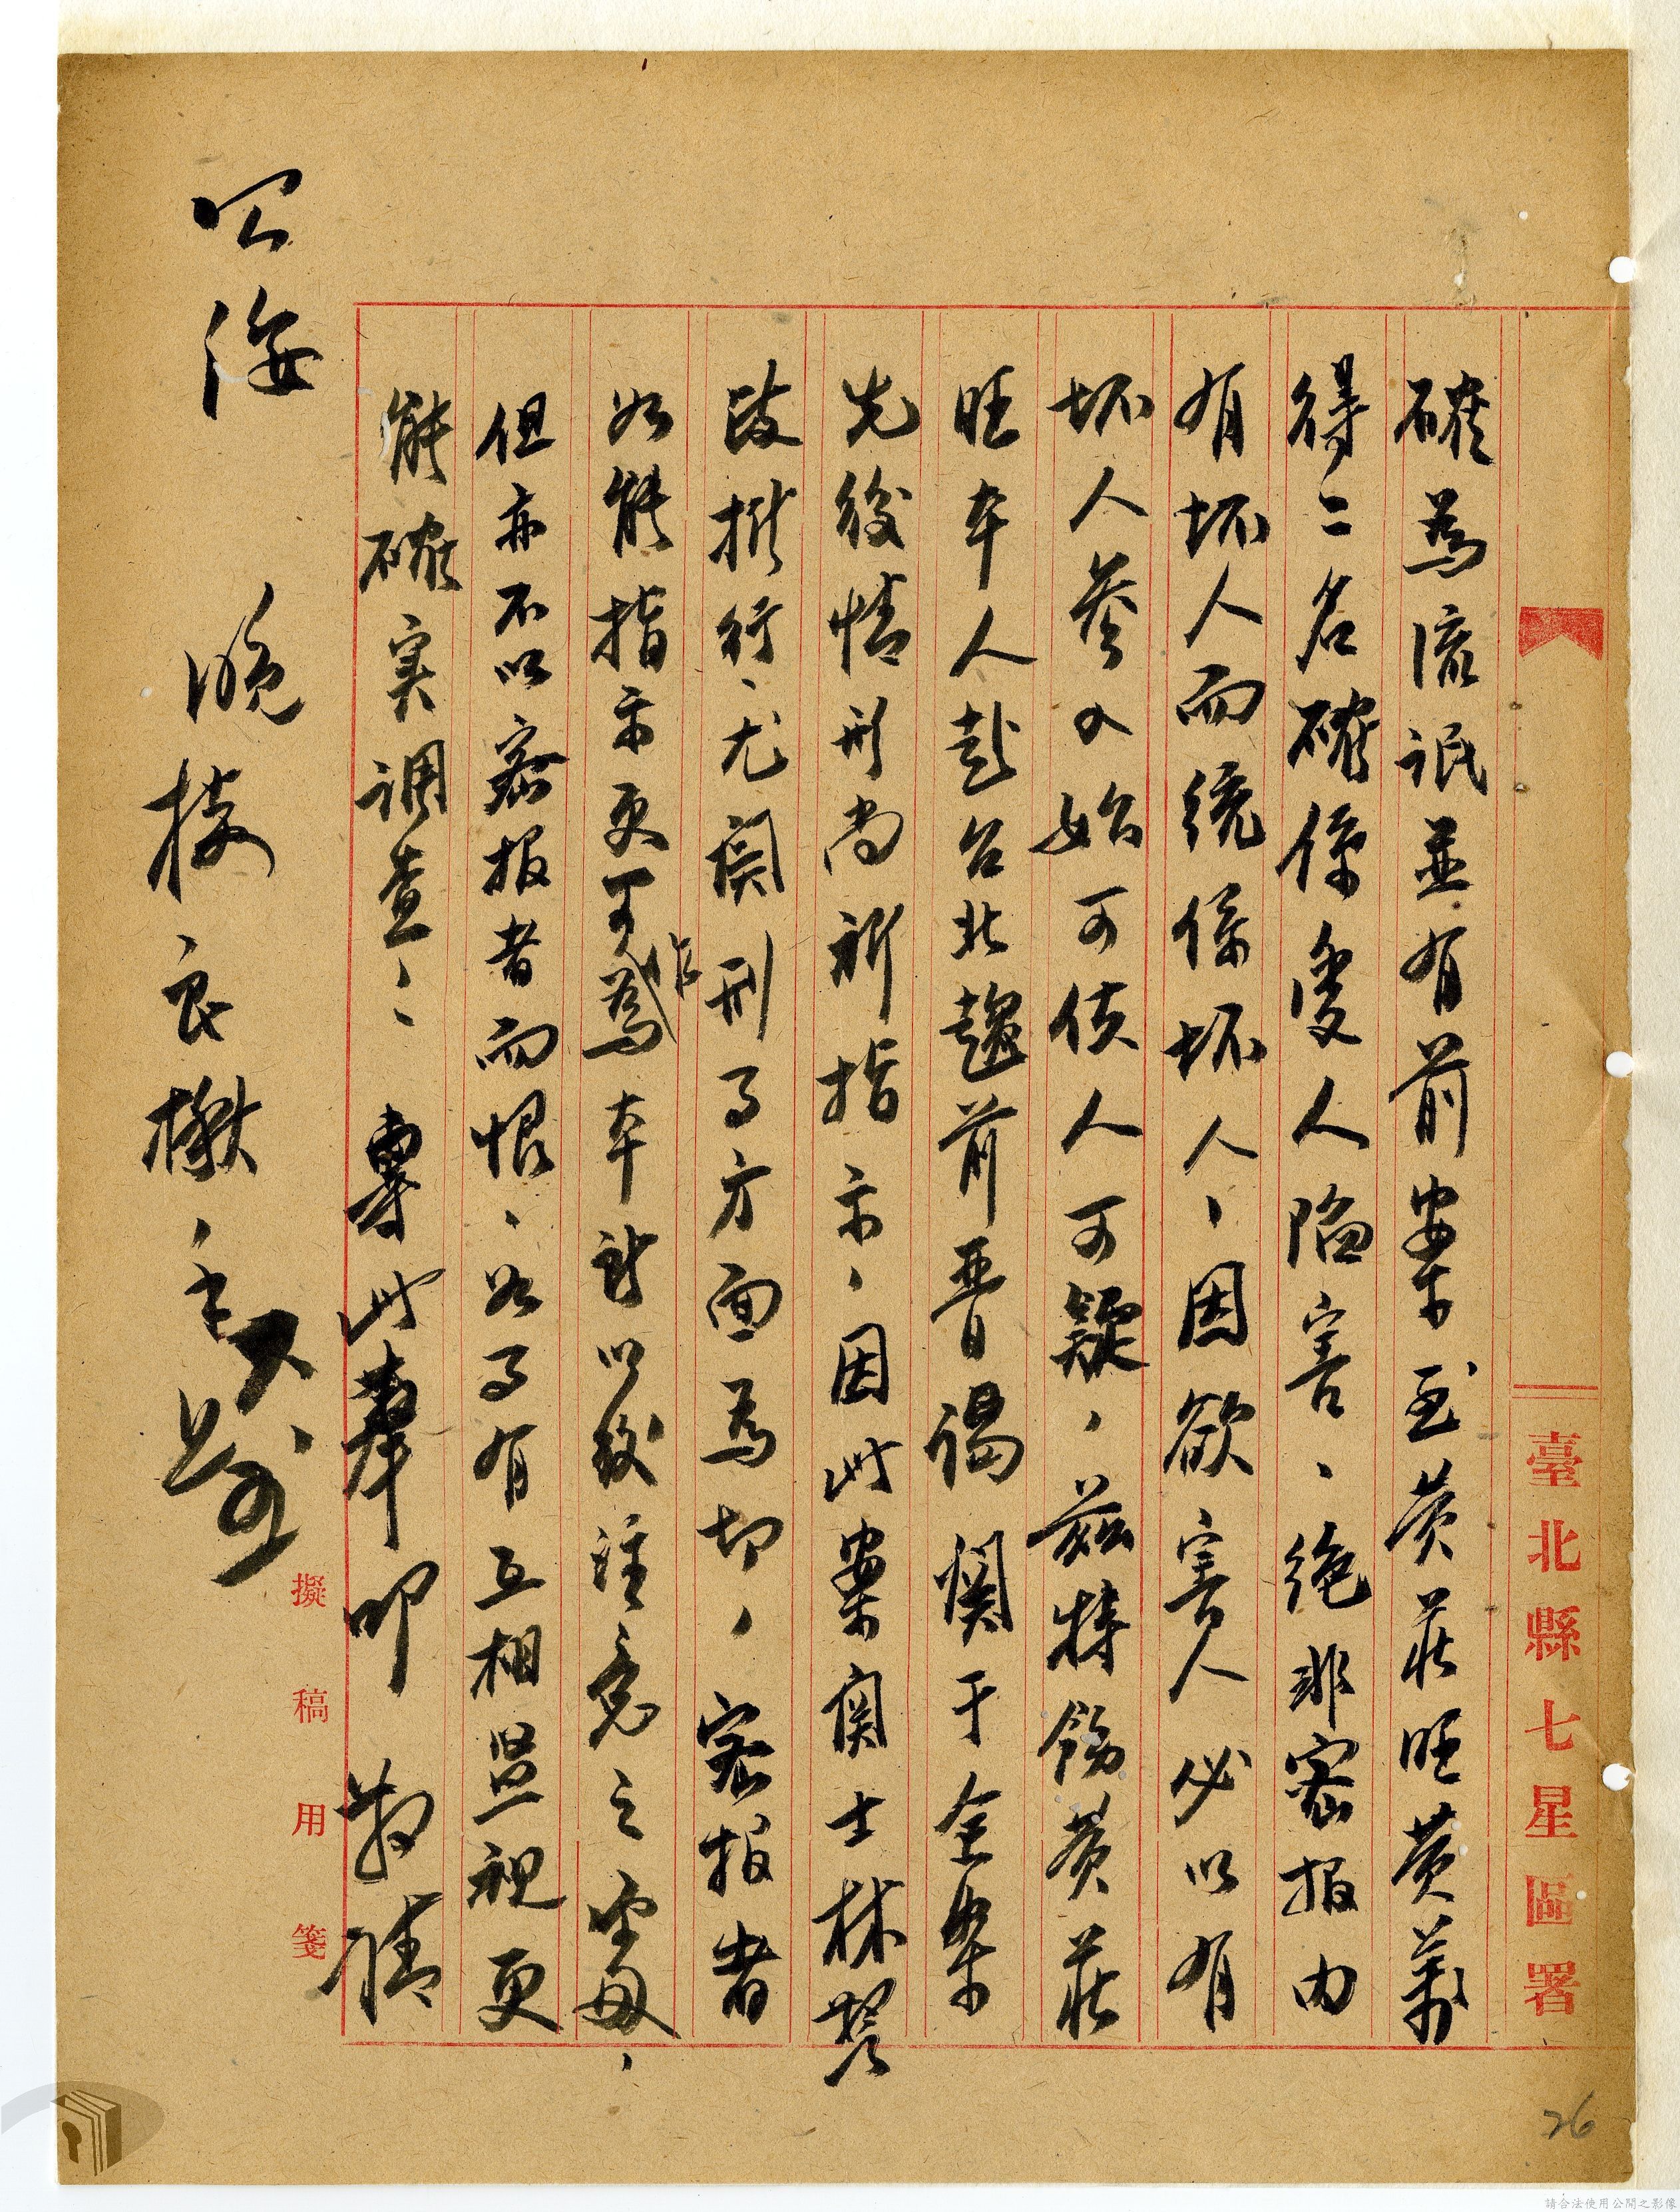 臺北縣七星區署
確為流氓並有前案至黃莊旺黃萬
得二名確係受人陷害、絕非密報內
有坏人而統係坏人、因欲害人必以有
坏人參入始可使人可疑、茲特飭黃莊
旺本人赴台北趨前晋謁関于全案
先後情形尚祈指示、因此案関士林
政推行、尤関刑事方面為切、密報者
如能指示更可作為本部以後注意之
但亦不以密報者而恨、如了有互相監視更
能確実調查、專此奉叩教請
公海
晚
良楸、
擬稿用箋
26
請合法使用公開之影像